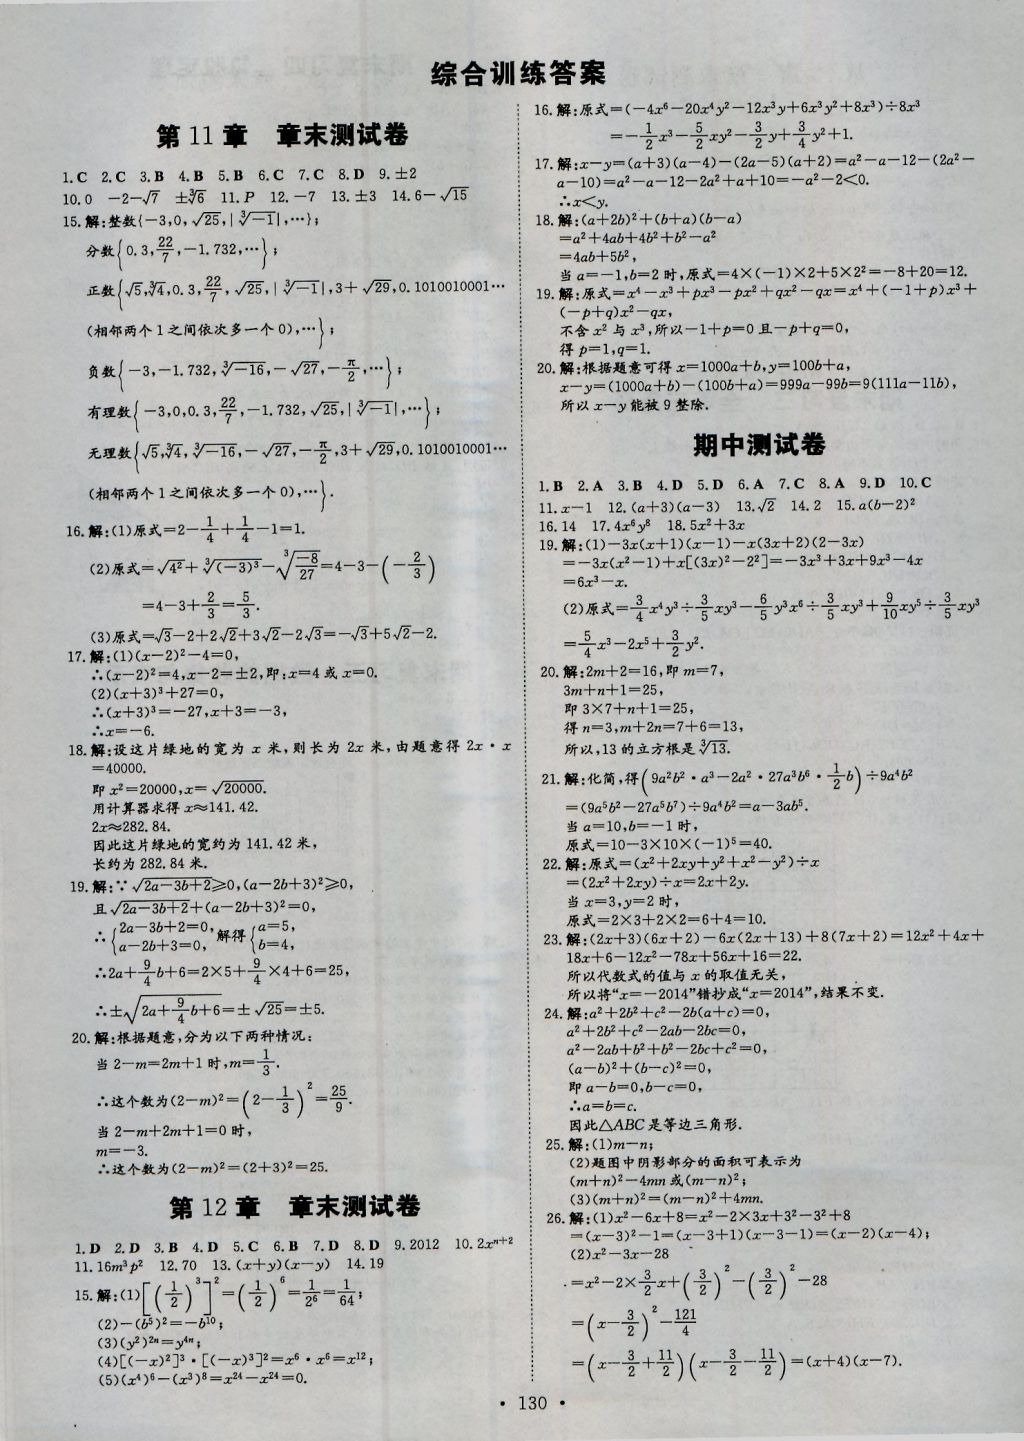 综合训练答案
第11章 章末测试卷
1.C 2.C 3.B 4.B 5.B 6.C 7.C 8.D 9.±2
10.0 -2-√7 ±∛6 11.P 12.-7 13.±3 14.6-√15
15.解:整数{-3,0,√25,|∛-1|,…};
分数{0.3,22/7,-1.732,…};
正数{√5,∛4,0.3,22/7,√25,|∛-1|,3+√29,0.1010010001…
(相邻两个1之间依次多一个0),…};
负数{-3,-1.732,∛-16,-√27,-π/2,…};
有理数{-3,0,0.3,22/7,-1.732,√25,|∛-1|,…};
无理数{√5,∛4,∛-16,-√27,-π/2,3+√29,0.1010010001…
(相邻两个1之间依次多一个0),…}.
16.解:(1)原式=2-1/4+1/4-1=1.
(2)原式=√4²+∛(-3)³-∛(-8/27)=4-3-(-2/3)
=4-3+2/3=5/3.
(3)原式=√3-2+2√2+3√2-2√3=-√3+5√2-2.
17.解:(1)(x-2)²-4=0,
∴(x-2)²=4,x-2=±2,即:x=4或x=0.
(2)(x+3)³+27=0,
∴(x+3)³=-27,x+3=-3,
∴x=-6.
18.解:设这片绿地的宽为x米,则长为2x米,由题意得2x·x
=40000.
即x²=20000,x=√20000.
用计算器求得x≈141.42.
2x≈282.84.
因此这片绿地的宽约为141.42米,
长约为282.84米.
19.解:∵√2a-3b+2≥0,(a-2b+3)²≥0,
且√2a-3b+2+(a-2b+3)²=0,
∴{2a-3b+2=0, a-2b+3=0, 解得{a=5, b=4,
∴2a+9/4b+6=2×5+9/4×4+6=25,
∴±√(2a+9/4b+6)=±√25=±5.
20.解:根据题意,分为以下两种情况:
当2-m=2m+1时,m=1/3.
∴这个数为(2-m)²=(2-1/3)²=25/9.
当2-m+2m+1=0时,
m=-3.
∴这个数为(2-m)²=(2+3)²=25.
第12章 章末测试卷
1.D 2.D 3.B 4.D 5.C 6.B 7.D 8.D 9.2012 10.2xⁿ⁺²
11.16m³p² 12.70 13.(x+y)(x-y) 14.19
15.解:(1)[(1/2)³]²=(1/2)⁶=1/2⁶=1/64;
(2)-(b⁵)²=-b¹⁰;
(3)(y²)²ⁿ=y⁴ⁿ;
(4)[(-x)²]³·[(-x)³]²=x⁶·x⁶=x¹²;
(5)(x⁴)⁶-(x³)⁸=x²⁴-x²⁴=0.
16.解:原式=(-4x⁶-20x⁴y²-12x³y+6x³y²+8x³)÷8x³
=-1/2x³-5/2xy²-3/2y+3/4y²+1.
17.解:x-y=(a+3)(a-4)-(2a-5)(a+2)=a²-a-12-(2a²-
a-10)=a²-a-12-2a²+a+10=-a²-2<0.
∴x<y.
18.解:(a+2b)²+(b+a)(b-a)
=a²+4ab+4b²+b²-a²
=4ab+5b²,
当a=-1,b=2时,原式=4×(-1)×2+5×2²=-8+20=12.
19.解:原式=x⁴-x³+px³-px²+qx²-qx=x⁴+(-1+p)x³+
(-p+q)x²-qx,
不含x²与x³,所以-1+p=0且-p+q=0,
得p=1,q=1.
20.解:根据题意可得x=1000a+b,y=100b+a,
x-y=(1000a+b)-(100b+a)=999a-99b=9(111a-11b),
所以x-y能被9整除.
期中测试卷
1.B 2.A 3.B 4.D 5.D 6.A 7.C 8.A 9.D 10.C
11.x-1 12.(a+3)(a-3) 13.√2 14.2 15.a(b-2)²
16.14 17.4x⁶y⁸ 18.5x²+3x
19.解:(1)-3x(x+1)(x-1)-x(3x+2)(2-3x)
=-3x(x²-1)+x[(3x)²-2²]=-3x³+3x+9x³-4x
=6x³-x.
(2)原式=3/4x⁴y³÷3/5xy³-6/5y³x⁶÷3/5xy³+9/10xy⁵÷3/5xy³
=5/4x³-2x⁵+3/2y².
20.解:2m+2=16,即m=7,
3m+n+1=25,
即3×7+n+1=25,
得n=3,m+2n=7+6=13,
所以,13的立方根是∛13.
21.解:化简,得(9a²b²·a³-2a²·27a³b⁶·1/2b)÷9a⁴b²
=(9a⁵b²-27a⁵b⁷)÷9a⁴b²=a-3ab⁵.
当a=10,b=-1时,
原式=10-3×10×(-1)⁵=40.
22.解:原式=(x²+2xy+y²+x²-y²)÷x
=(2x²+2xy)÷x=2x+2y.
当x=3,y=2时,
原式=2×3+2×2=6+4=10.
23.解:(2x+3)(6x+2)-6x(2x+13)+8(7x+2)=12x²+4x+
18x+6-12x²-78x+56x+16=22.
所以代数式的值与x的取值无关,
所以将“x=-2014”错抄成“x=2014”,结果不变.
24.解:a²+2b²+c²-2b(a+c)=0,
a²+2b²+c²-2ab-2bc=0,
a²-2ab+b²+b²-2bc+c²=0,
(a-b)²+(b-c)²=0,
即a-b=0,b-c=0,
∴a=b=c.
因此△ABC是等边三角形.
25.解:(1)m-n;
(2)题图中阴影部分的面积可表示为
(m+n)²-4mn或(m-n)²;
(3)(m+n)²=(m-n)²+4mn.
26.解:(1)x²-6x+8=x²-2×3x+3²-3²+8
=(x-3)²-1=(x-3+1)(x-3-1)=(x-2)(x-4);
(2)x²-3x-28
=x²-2×3/2x+(3/2)²-(3/2)²-28
=(x-3/2)²-121/4
=(x-3/2+11/2)(x-3/2-11/2)=(x+4)(x-7).
· 130 ·